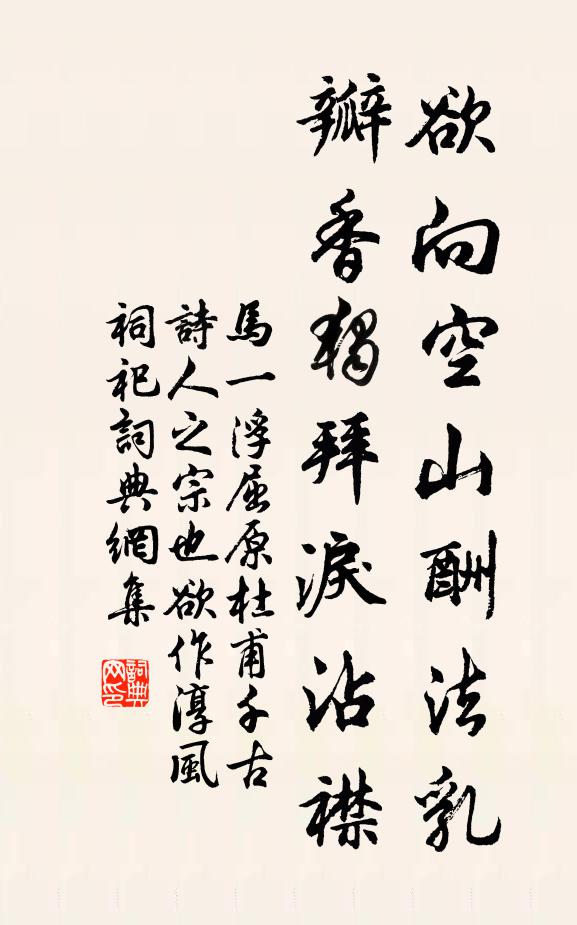 欲向空山酬法乳
瓣香獨拜淚沾襟
馬一浮屈原杜甫千古
詩人之宗也欲作淳風
祠祀詞典網集
詞典网印